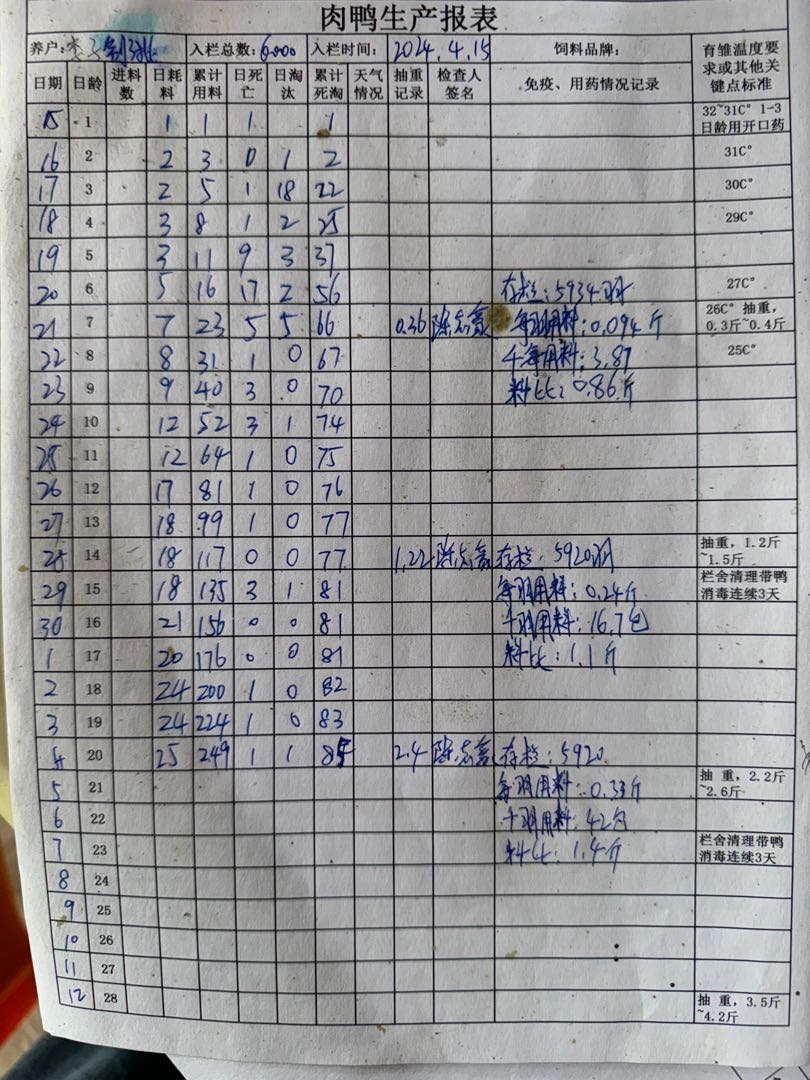 肉鸭生产报表
养户: 李子 入栏总数: 6000 入栏时间: 2024.4.15 饲料品牌: 育雏温度要求或其他关键点标准
日期 日龄 进料数 日耗料 累计用料 日死亡 日淘汰 累计死淘 天气情况 抽重记录 检查人签名 免疫、用药情况记录
15 1 1 1 1 1 32~31C° 1-3日龄用开口药
16 2 2 3 0 1 2 31C°
17 3 2 5 1 18 22 30C°
18 4 3 8 1 2 25 29C°
19 5 3 11 9 3 37
20 6 5 16 17 2 56 存栏:5934羽 27C°
21 7 7 23 5 5 66 0.36 陈志鑫 每羽用料:0.094斤 26C° 抽重,0.3斤~0.4斤
22 8 8 31 1 0 67 千每用料:3.87 25C°
23 9 9 40 3 0 70 料比:0.86斤
24 10 12 52 3 1 74
25 11 12 64 1 0 75
26 12 17 81 1 0 76
27 13 18 99 1 0 77
28 14 18 117 0 0 77 1.22 陈志鑫 存栏:5920羽 抽重,1.2斤~1.5斤
29 15 18 135 3 1 81 每羽用料:0.24斤 栏舍清理带鸭消毒连续3天
30 16 21 156 0 0 81 千羽用料:16.7包
1 17 20 176 0 0 81 料比:1.1斤
2 18 24 200 1 0 82
3 19 24 224 1 0 83
4 20 25 249 1 1 85 2.4 陈志鑫 存栏:5920
5 21 每羽用料:0.33斤 抽重,2.2斤~2.6斤
6 22 千羽用料:42包
7 23 料比:1.4斤 栏舍清理带鸭消毒连续3天
8 24
9 25
10 26
11 27
12 28 抽重,3.5斤~4.2斤